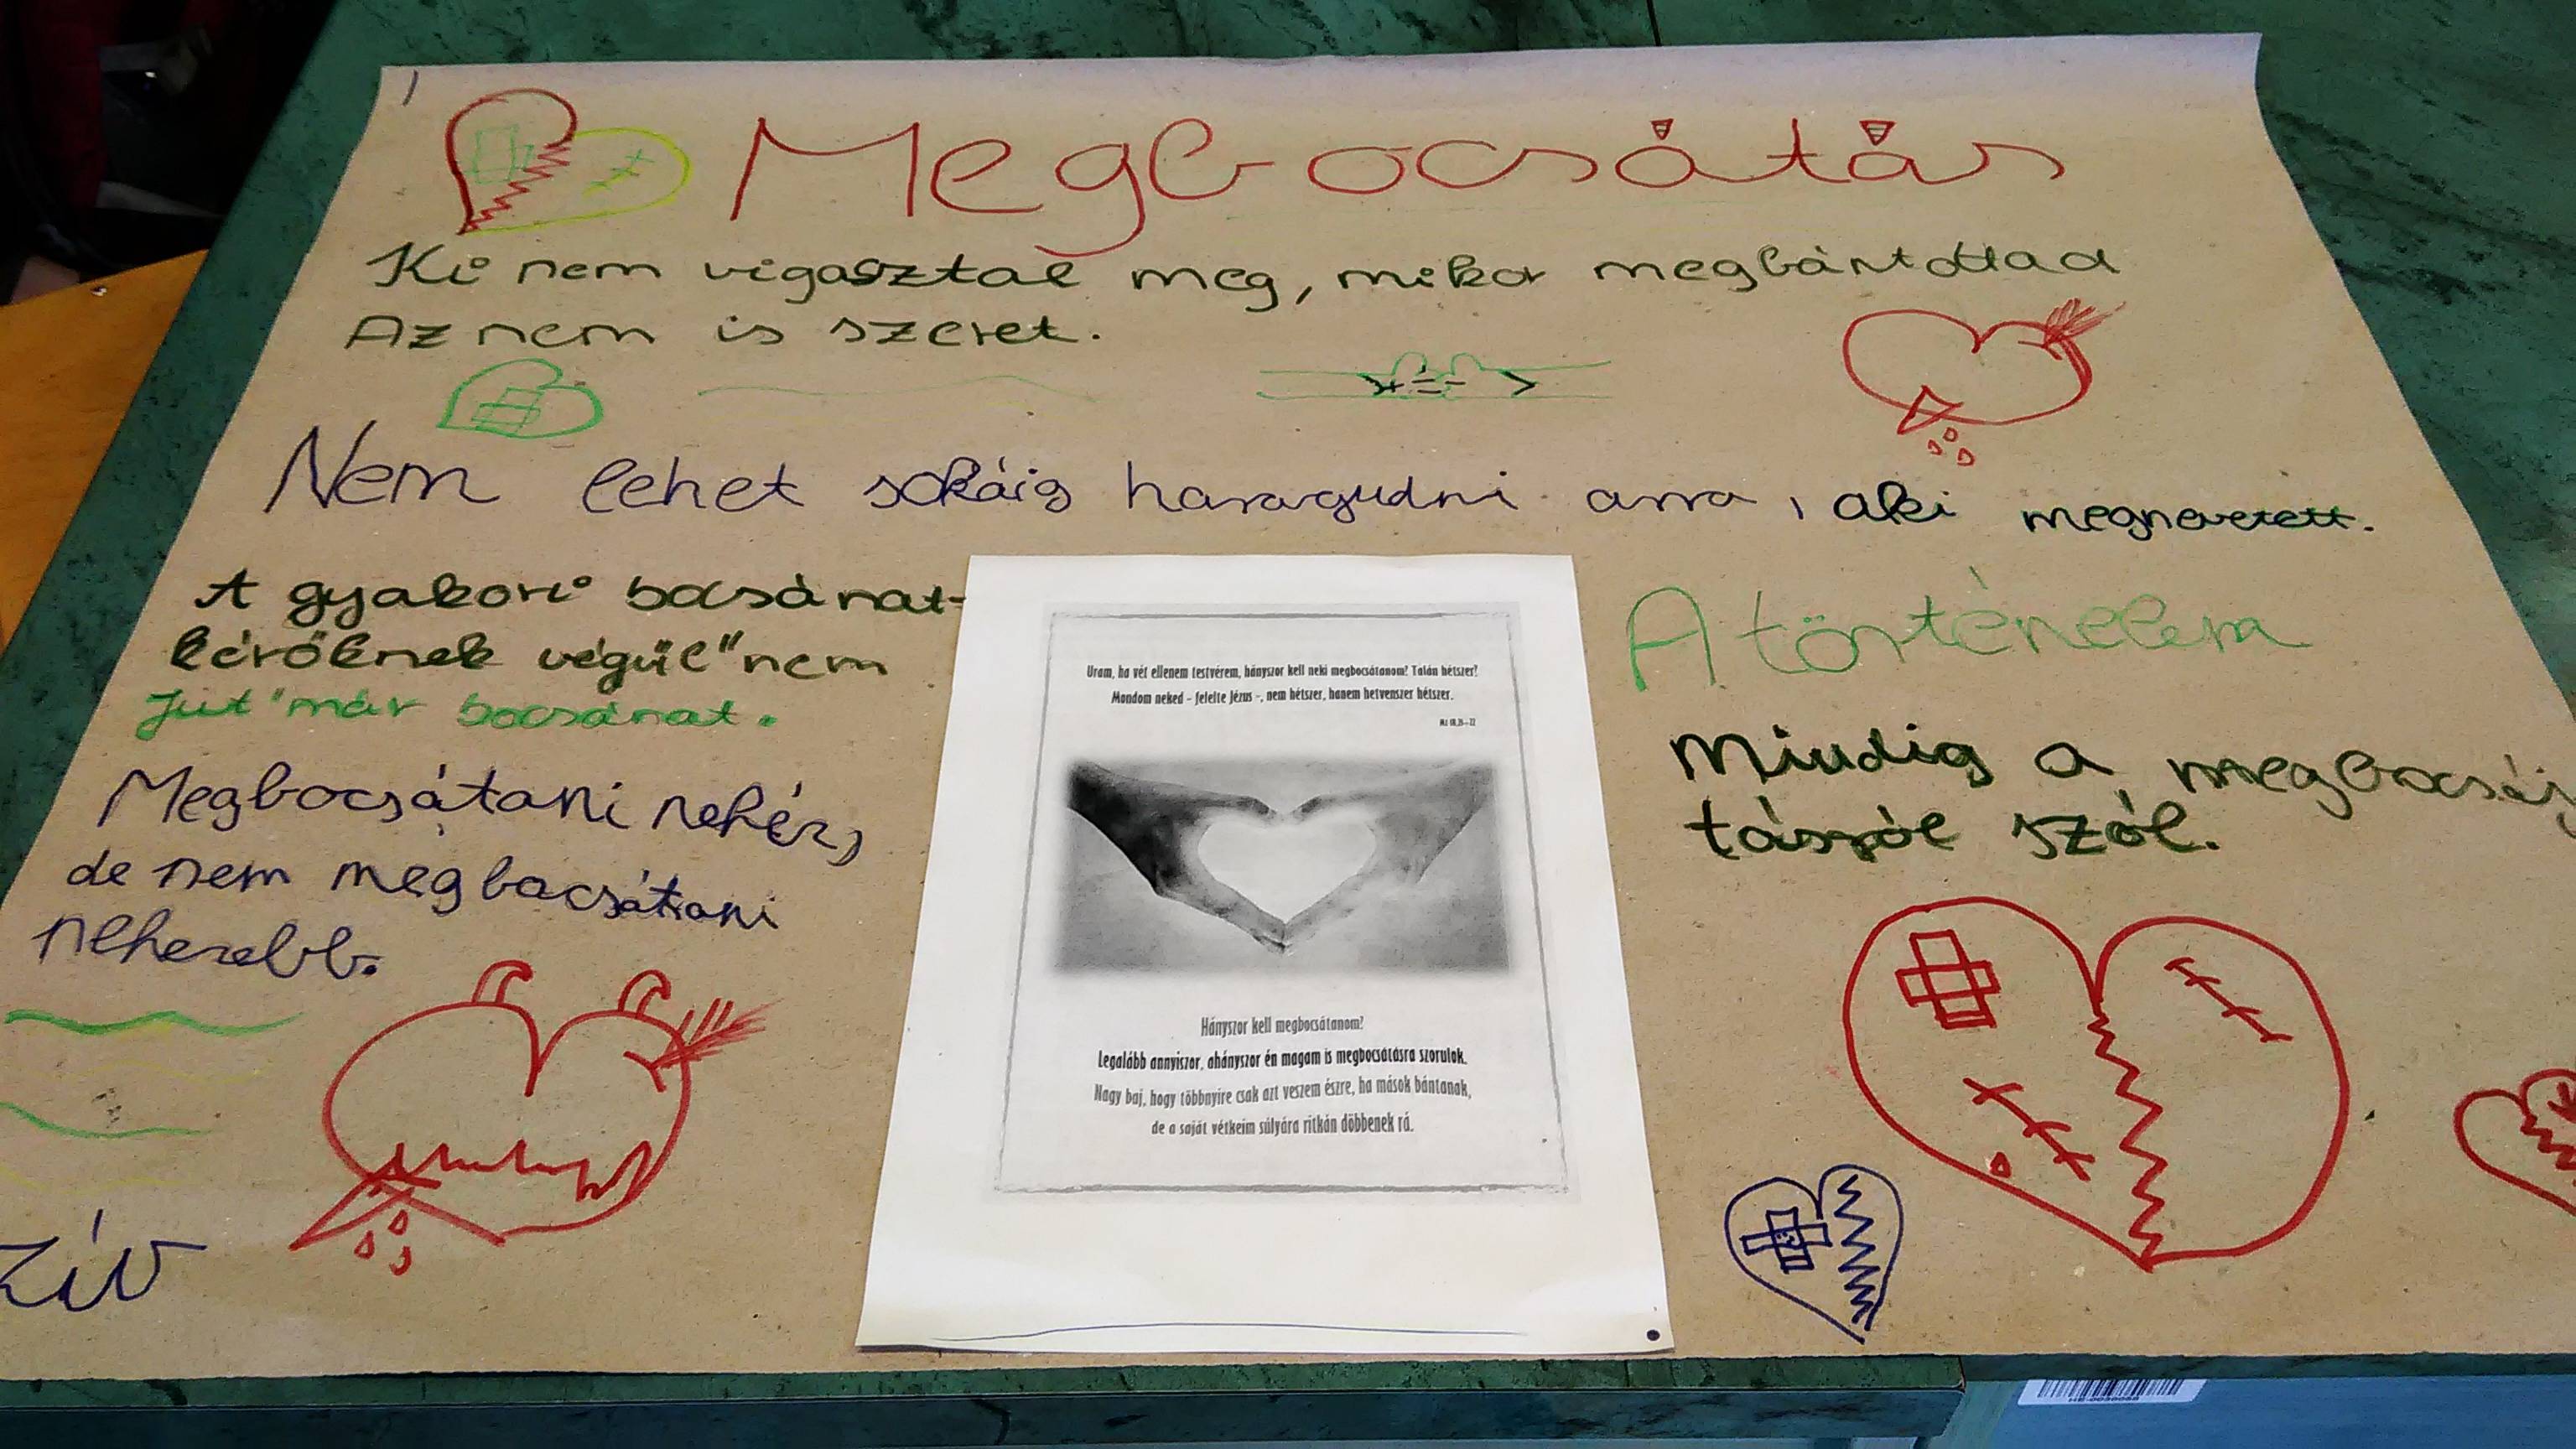 Megbocsátás
Ki nem vigasztal meg, mikor megbántottad
Az nem is szeret.
Nem lehet sokáig haragudni arra, aki megnevetett.
A gyakori bocsánat-
kérőknek végül "nem
Jut" már bocsánat.
Megbocsátani nehéz,
de nem megbocsátani
nehezebb.
zív
Uram, ha vét ellenem testvérem, hányszor kell neki megbocsátanom? Talán hétszer?
Mondom neked - felelte Jézus -, nem hétszer, hanem hetvenszer hétszer.
Mt 18,21-22
Hányszor kell megbocsátanom?
Legalább annyiszor, ahányszor én magam is megbocsátásra szorulok.
Nagy baj, hogy többnyire csak azt veszem észre, ha mások bántanak,
de a saját vétkeim súlyára ritkán döbbenek rá.
A történelem
Mindig a megbocsáj
tásról szól.